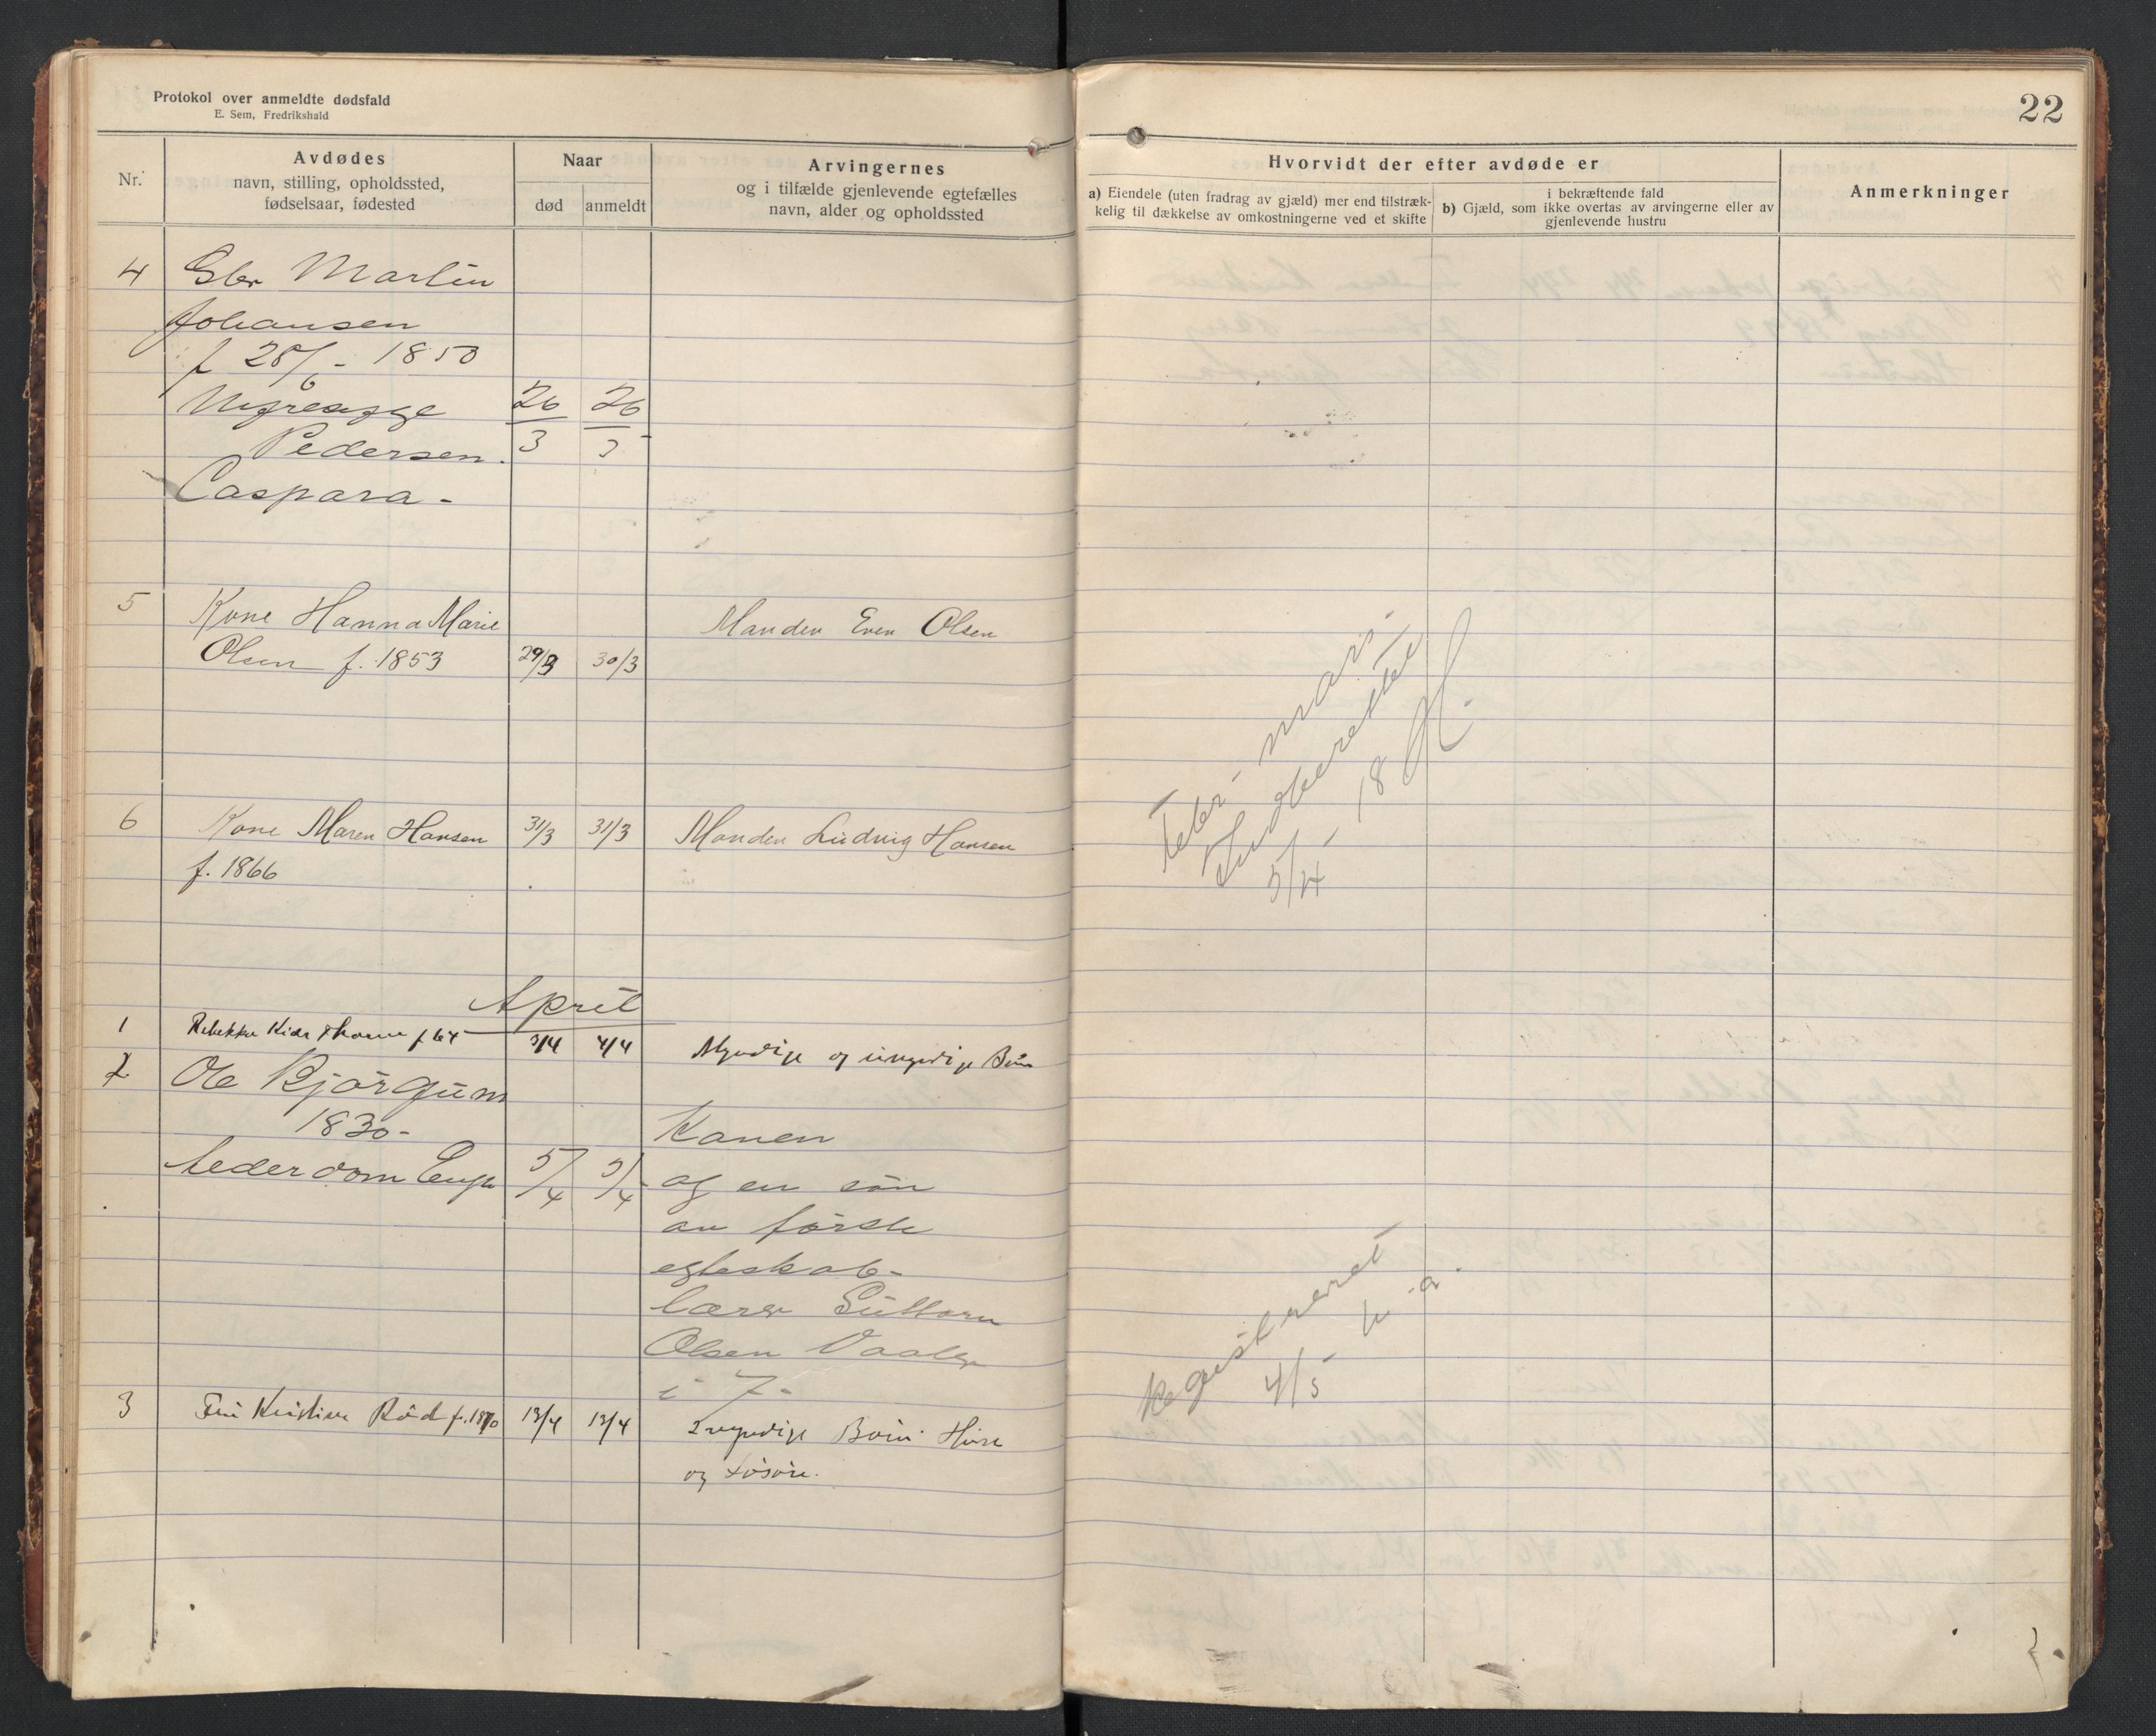 Protokol over anmeldte dødsfald
E. Sem, Fredrikshald
22
Nr.
Avdødes
navn, stilling, opholdssted,
fødselsaar, fødested
Naar
død
anmeldt
Arvingernes
og i tilfælde gjenlevende egtefælles
navn, alder og opholdssted
Hvorvidt der efter avdøde er
a) Eiendele (uten fradrag av gjæld) mer end tilstræk-
kelig til dækkelse av omkostningerne ved et skifte
i bekræftende fald
b) Gjæld, som ikke overtas av arvingerne eller av
gjenlevende hustru
Anmerkninger
4 Martin
Johansen
f 28/6 - 1850
26/3 26/3
Pedersen.
Caspara -
5 Kone Hanna Marie
Olsen f. 1853 29/3 30/3
Manden Even Olsen
6 Kone Maren Hansen 31/3 31/3 Manden Ludvig Hansen
f. 1866
Febr - mars -
Indberettet
5/4 - 18
April
1 Rebekka f 64 3/4 4/4 Myndige og umyndige Børn
2 Ole Bjørgum
1830 -
5/4 5/4
Konen
og en søn
av første
egteskab -
lærer Guttorm
Olsen Vaaler
i 7 -
Registreret
4/5
3 Kristine Rød f. 1870 13/4 13/4 2 myndige Børn Hus
og Løsøre.